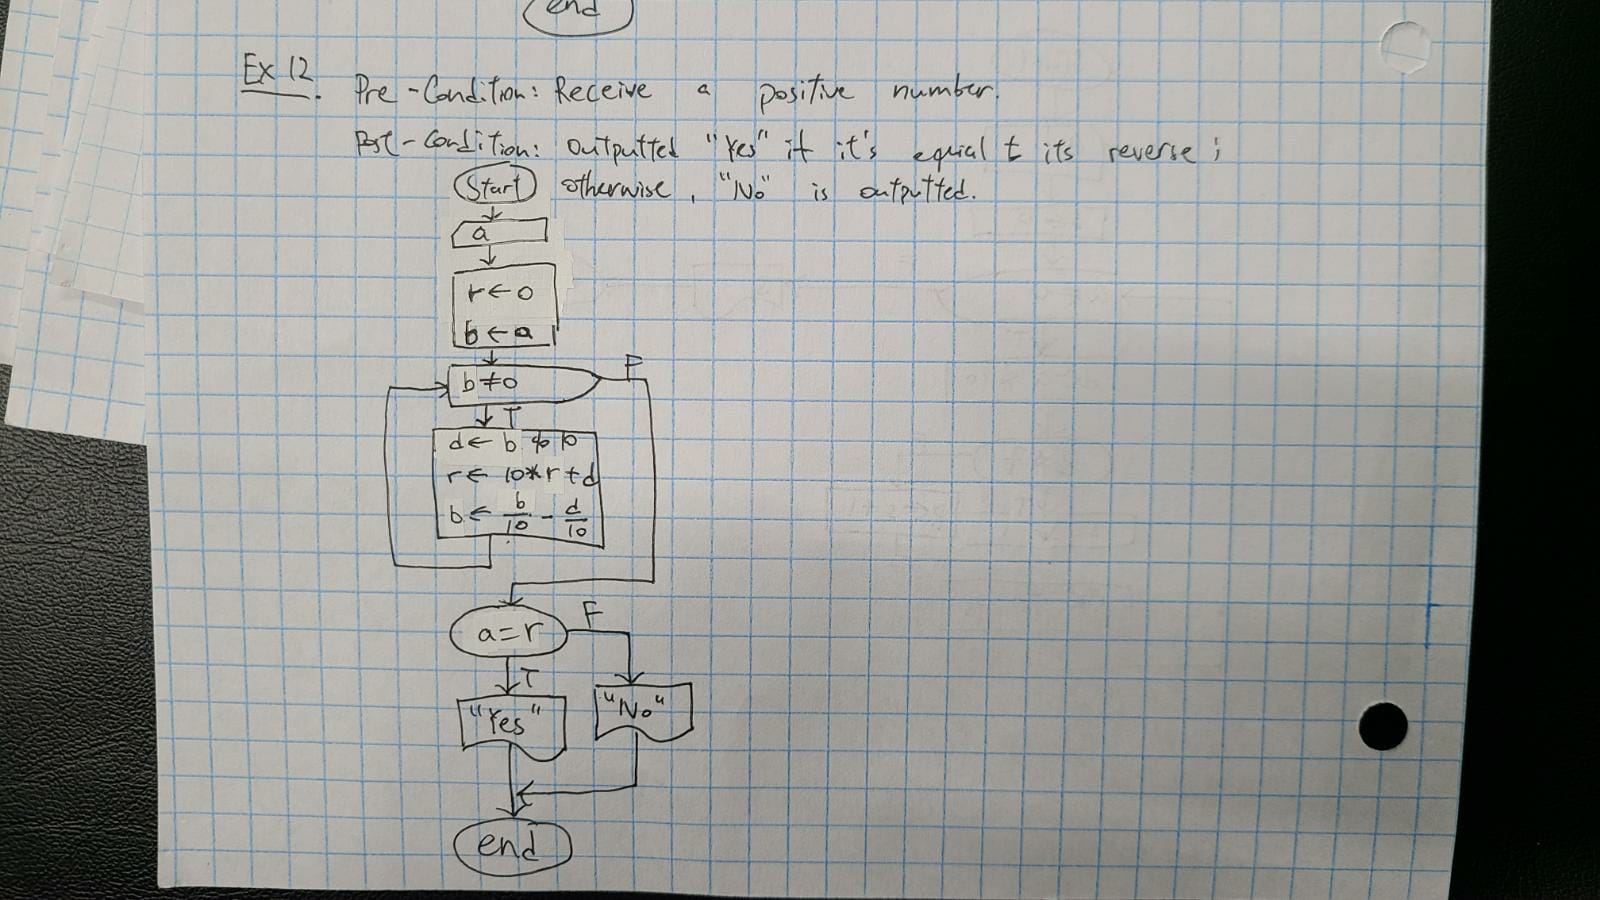 end
Ex 12.
Pre-Condition: Receive a positive number.
Post-Condition: outputted "Yes" if it's equial t its reverse;
Start
otherwise, "No" is outputted.
a
r ← 0
b ← a
b ≠ 0
F
T
d ← b % 10
r ← 10*r + d
b ← b/10 - d/10
a = r
F
T
"Yes"
"No"
end